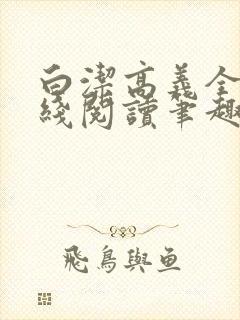 白潔高義全
綫閱讀筆趣
飛鳥與魚